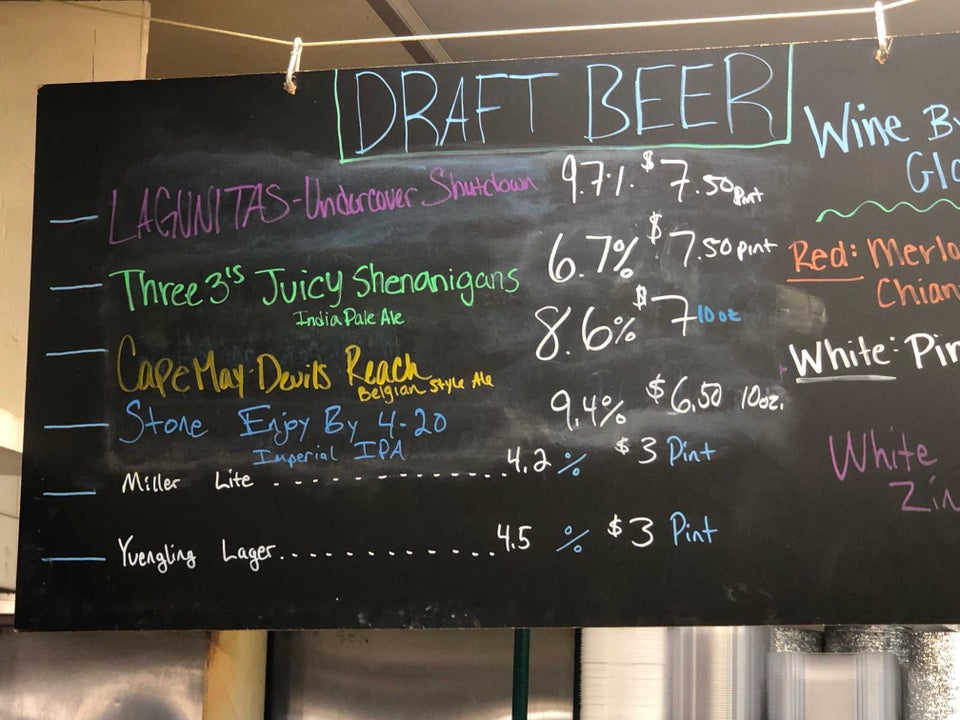 DRAFT BEER
LAGUNITAS-Undercover Shutdown 9.7%. $7.50 Pint
Three 3's Juicy Shenanigans 6.7% $7.50 pint
India Pale Ale
Cape May Devils Reach 8.6% $7 10oz
Belgian Style Ale
Stone Enjoy By 4-20 9.4% $6.50 10oz.
Imperial IPA
Miller Lite ................ 4.2 % $3 Pint
Yuengling Lager............ 4.5 % $3 Pint
Wine By
Gla
Red: Merlo
Chian
White: Pin
White
Zin